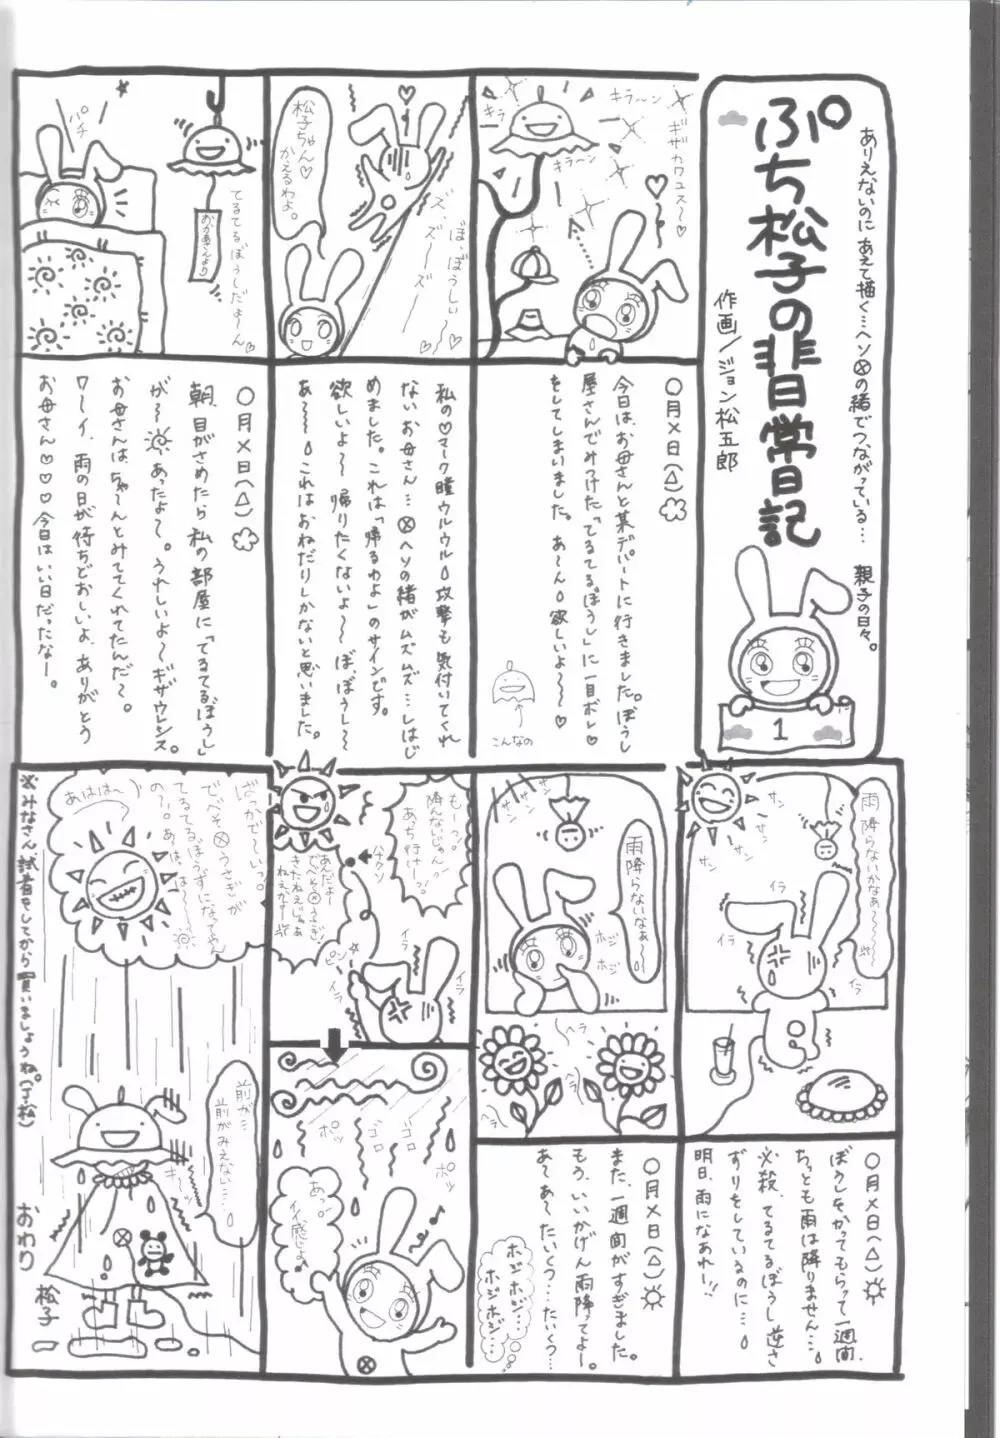 ありえないのに あえて描く…ヘソ⊗の緒でつながっている… 親子の日々。
ぷち松子の非日常日記
作画/ジョン松五郎
1
キラーン
キラ
キラーン
ギザカワユス〜♡
〇月×日(△)
今日は、お母さんと某デパートに行きました。ぼうし
屋さんでみつけた「てるてるぼうし」に一目ボレ♡
をしてしまいました。あ〜ん 欲しいよ〜〜〜♡
こんなの
松子ちゃん♡
かえるわよ。
ぼ、ぼうしぃ〜
ズ、ズー
ズー
私の♡マーク瞳ウルウル攻撃も気付いてくれ
ないお母さん…⊗ヘソの緒がムズムズ…しはじ
めました。これは「帰るわよ」のサインです。
欲しいよ〜 帰りたくないよ〜 ぼぼうし〜
あ〜〜 これはおねだりしかないと思いました。
パチ
てるてるぼうしだよ〜ん
おかあさんより
〇月×日(△)
朝、目がさめたら私の部屋に「てるてるぼうし」
が〜 あったよ〜。うれしいよ〜ギザウレシス。
お母さんは、ちゃ〜んとみててくれてたんだ〜。
ワーイ、雨の日が待ちどおしいよ、ありがとう
お母さん♡♡♡♡今日はいい日だったなー。
雨降らないかなぁ〜〜〜
サン
サン
サン
イラ
イラ
イラ
〇月×日(△)
ぼうしをかってもらって一週間、
ちっとも雨は降りません…
必殺、てるてるぼうし逆さ
ずりをしているのに…
明日、雨になあれー!!
サン
サン
サン
雨降らないなぁ〜
ホジ
ホジ
ヘラ
ヘラ
ヘラ
〇月×日(△)
また、一週間がすぎました。
もう、いいかげん雨降ってよー。
あ〜あ〜たいくつ…たいくつ…
ホジホジ…
ホジホジ…
もーっっ
降んないじゃん。
あっち行けーっっ
ハナクソ
あんだよー
でべそ⊗うさぎ、
きたねぇじゃぁ
ねぇかー
ピンッ
イラ
イラ
イラ
ポッ
ゴロ
ゴロ
ポッ
ポッ
あっ…
イイ感じょ♪
ばっかで〜いっ。
でべそ⊗うさぎが
てるてるぼうずになってやん
の〜。あっはっはっはー
あははは〜
前が…
前がみえない…
おわり
松子
※みなさん試着をしてから買いましょうね。(J・松)